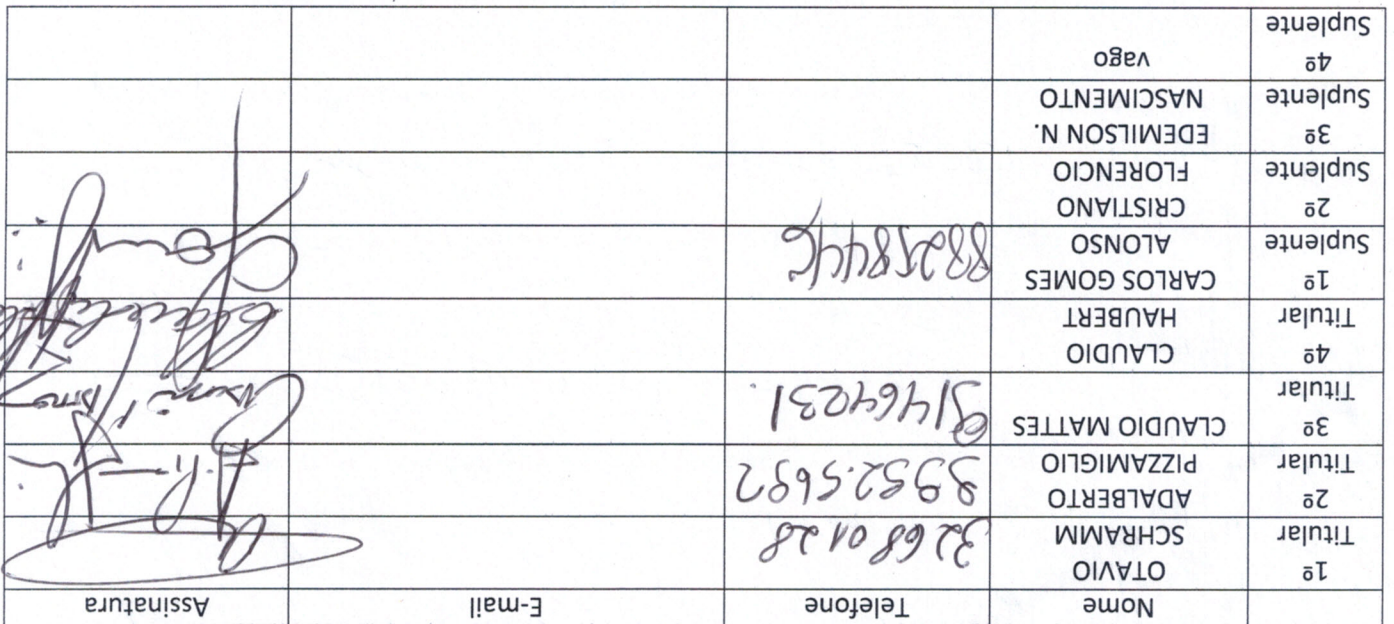 Nome Telefone E-mail Assinatura
1º Titular OTAVIO SCHRAMM 3268 0128
2º Titular ADALBERTO PIZZAMIGLIO 9952.5692
3º Titular CLAUDIO MATTES 91464231
4º Titular CLAUDIO HAUBERT
1º Suplente CARLOS GOMES ALONSO 88258446
2º Suplente CRISTIANO FLORENCIO
3º Suplente EDEMILSON N. NASCIMENTO
4º Suplente vago